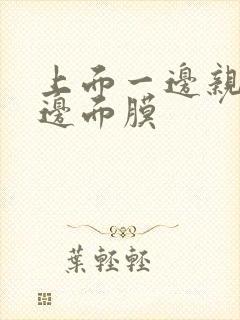 上而一邊親
邊而膜
葉輕輕